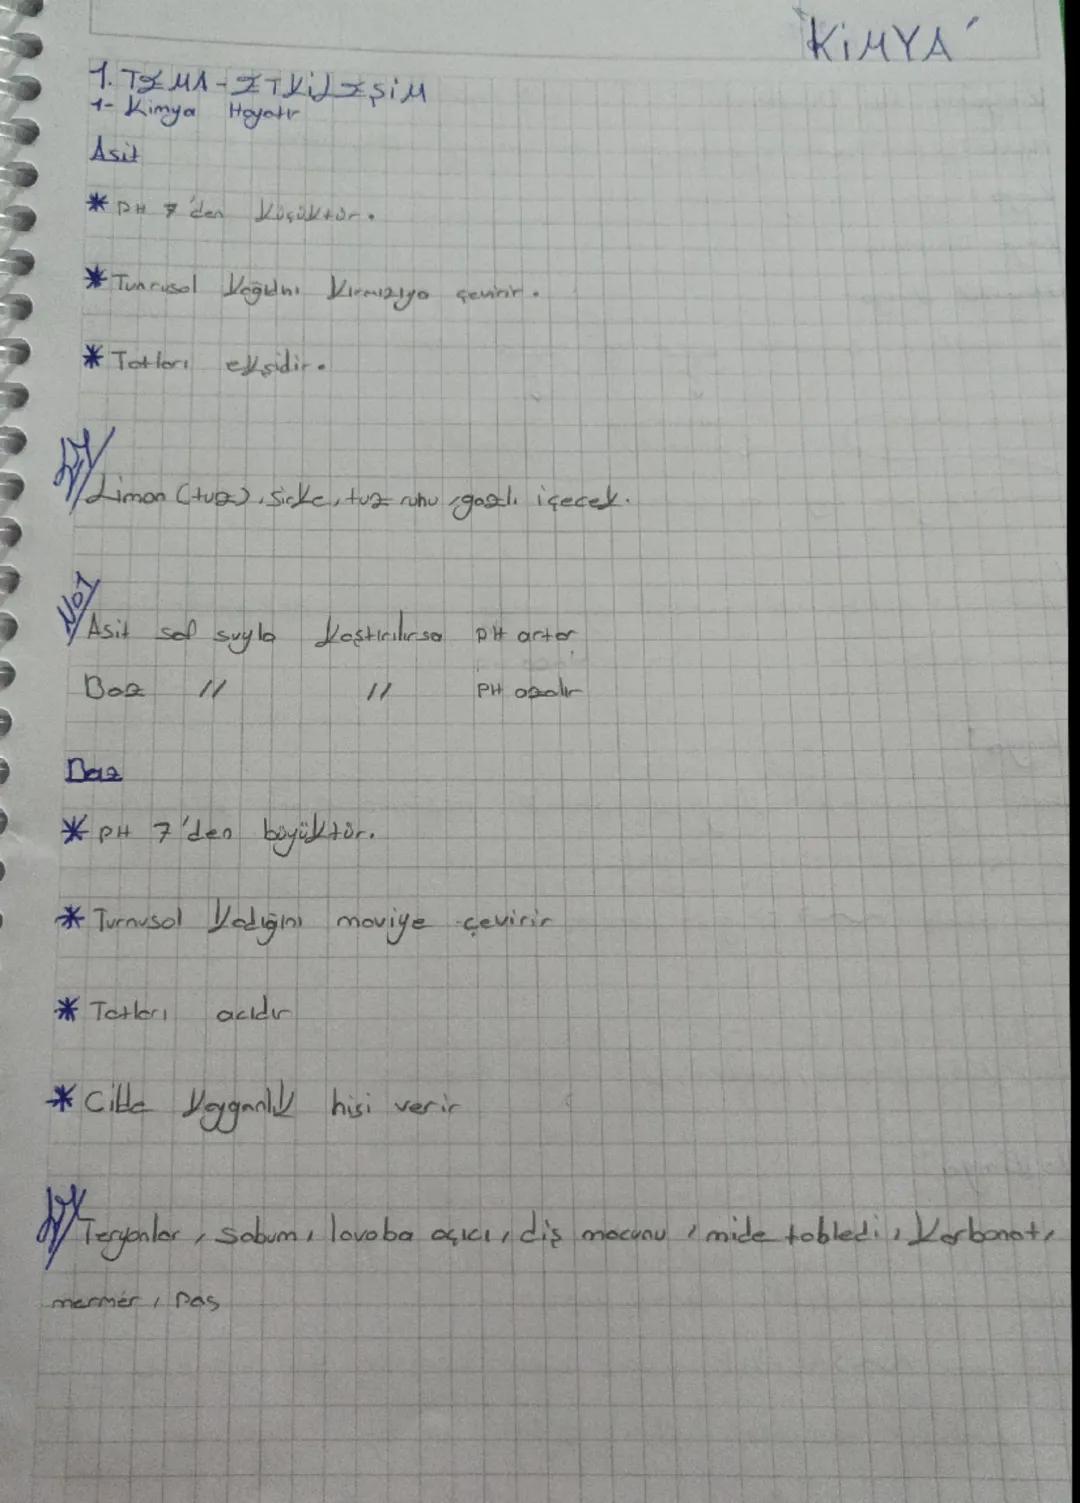 KİMYA
1. TEMA - ETKİLEŞİM
1- Kimya Hayatır
Asit
* PH 7'den küçüktür.
* Turnusol kağıdını kırmızıya çevirir.
* Tatları ekşidir.
Limon (tuz), sirke, tuz ruhu, gazlı içecek.
NOT
Asit saf suyla kaştırılırsa PH artar
Baz // // PH azalır
Baz
* PH 7'den büyüktür.
* Turnusol kadığını maviye çevirir
* Tatları acıdır
* Cilde kayganlık hisi verir
sabum, lavaba açıcı, diş macunu, mide tabledi, karbonat,
mermer, pas